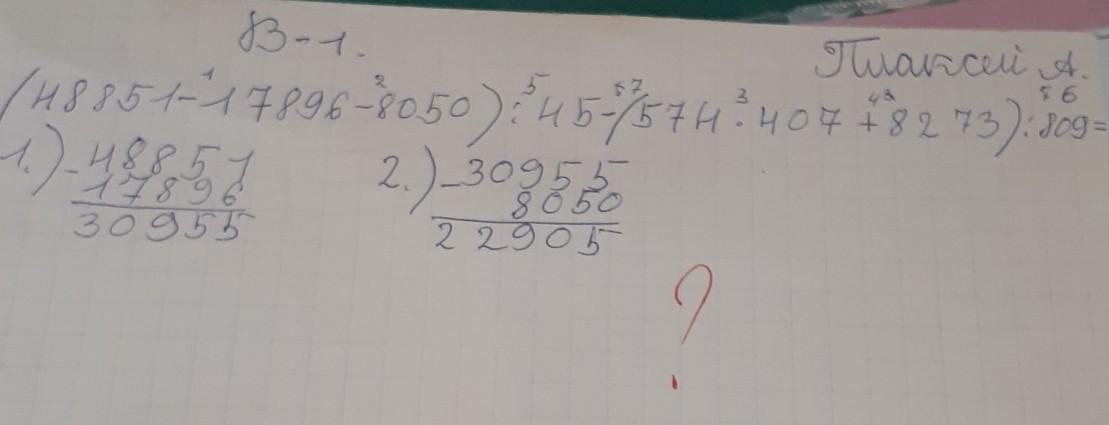 В-1.
Плаксий А.
(48851-17896-8050):45-(574·407+8273):809=
1.) -48851
17896
30955
2.) -30955
8050
22905
?